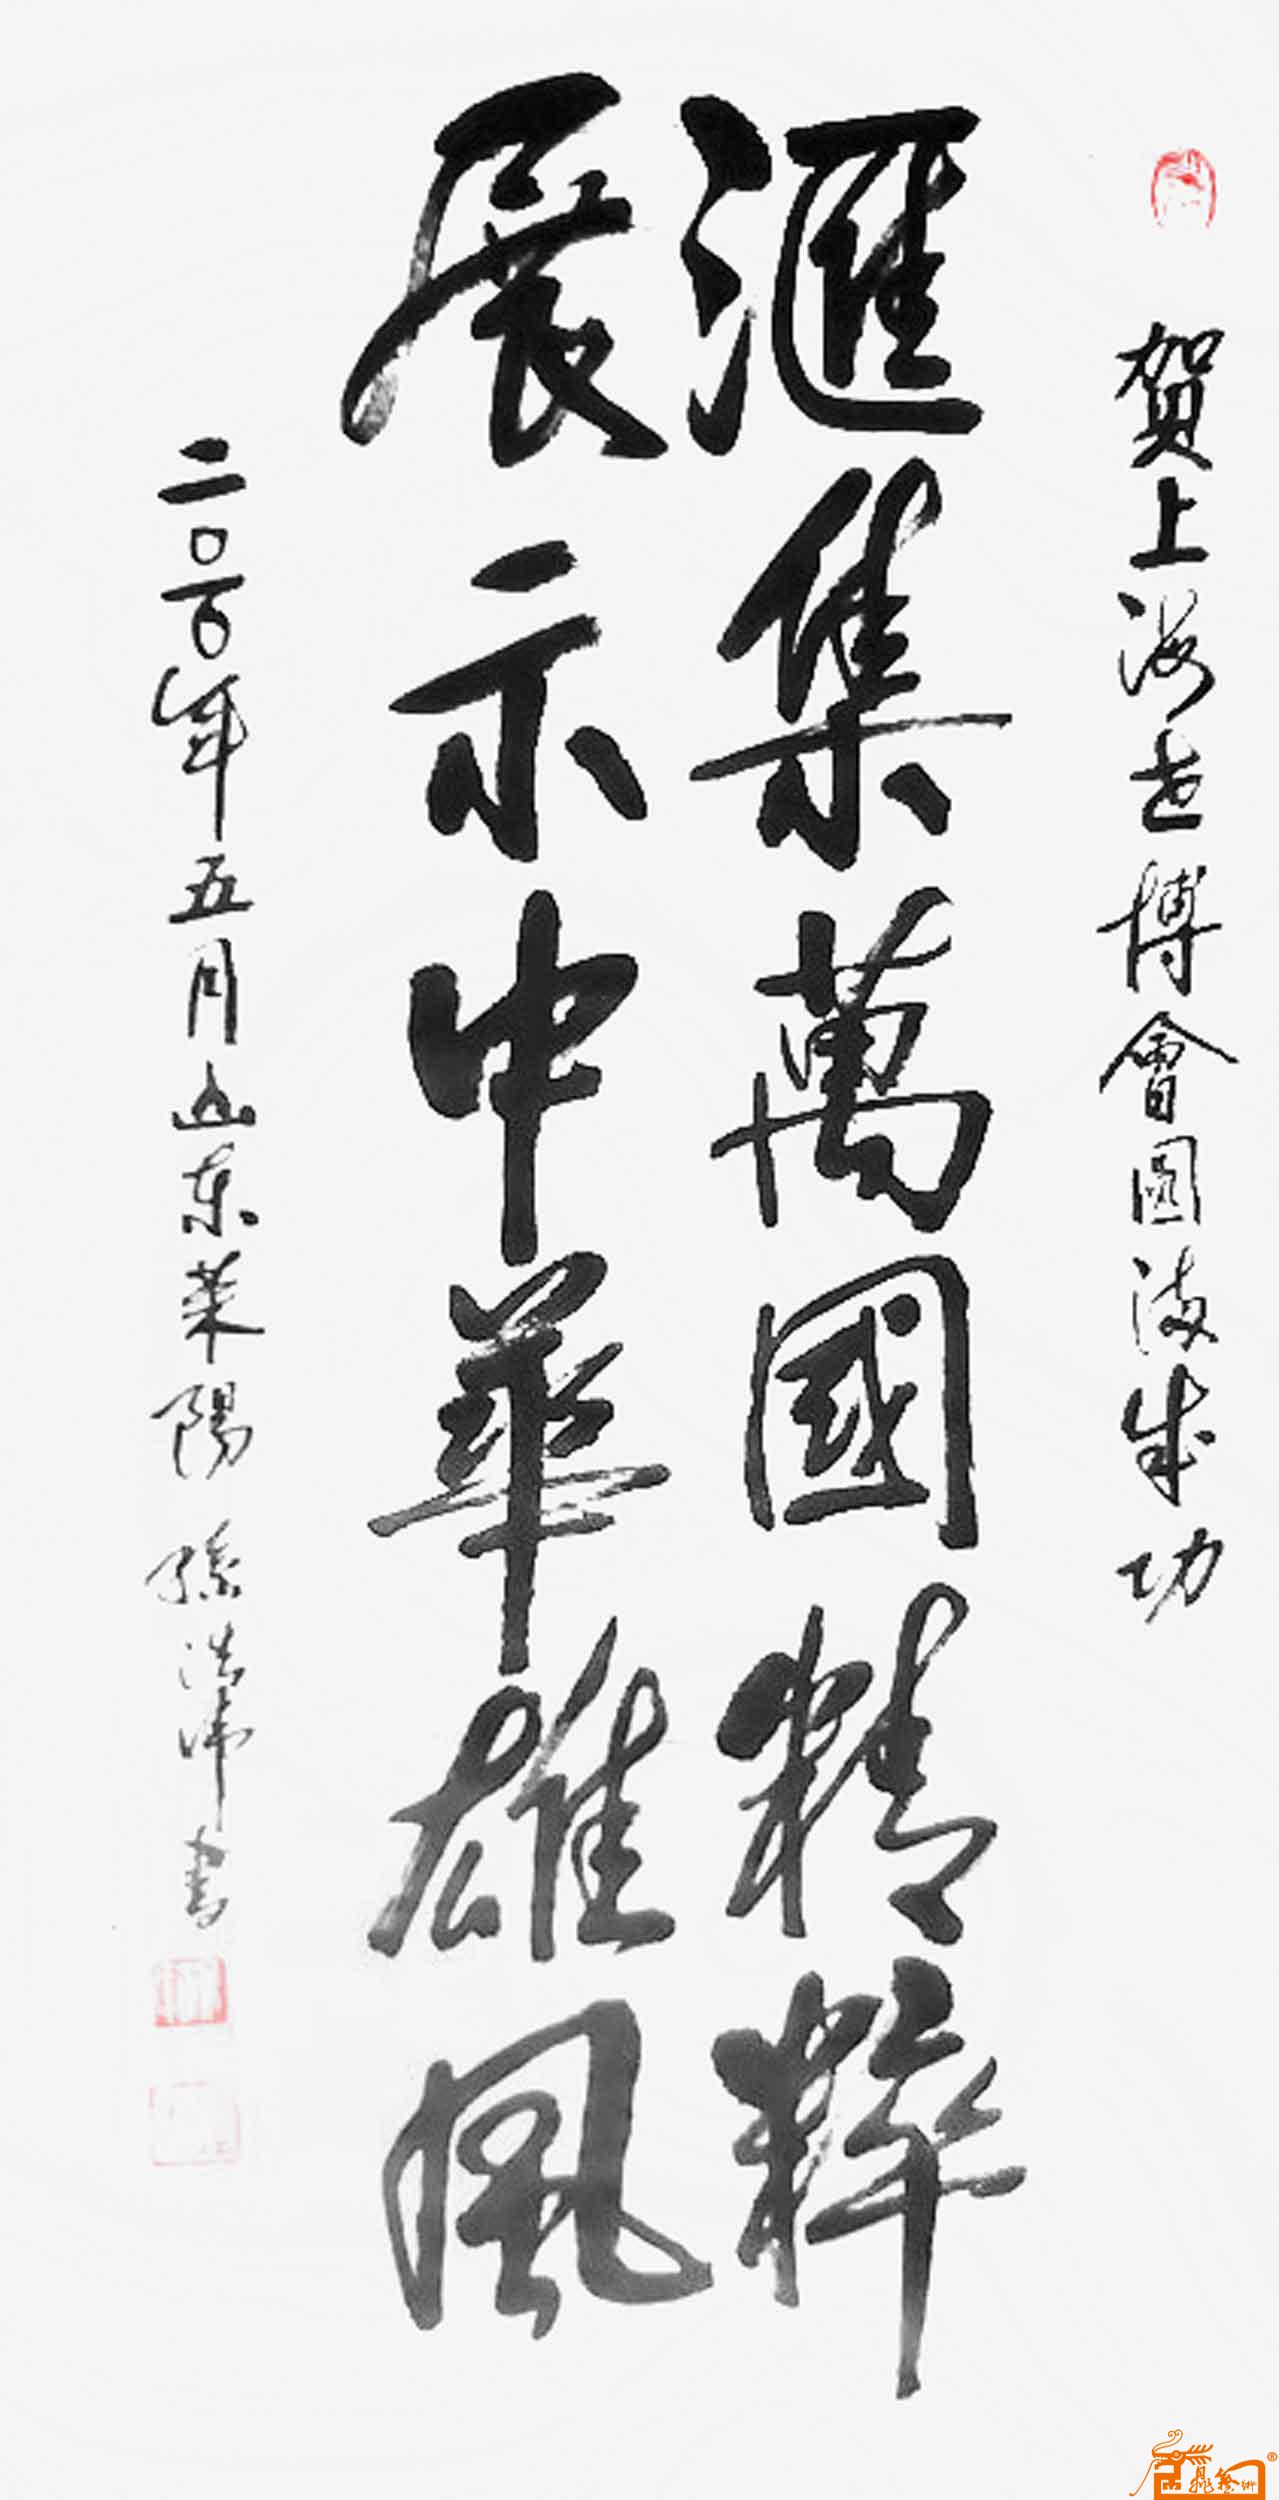 賀上海世博會圓满成功
滙集萬國精粹
展示中華雄風
二〇一〇年五月山东莱陽孫浩